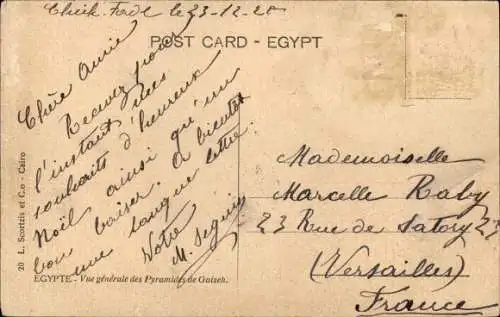 Cheik Fadl le 23-12-20
POST CARD - EGYPT
Chère Amie
Recevez pour
l'instant mes
souhaits d'heureux
Noël ainsi qu'un
bon baiser. A bientôt
une longue lettre.
Votre
M. Seguin
Mademoiselle
Marcelle Raby
23 Rue de Satory 23
(Versailles)
France
20 L. Scortzis et C.o - Cairo
EGYPTE - Vue générale des Pyramides de Guiseh.